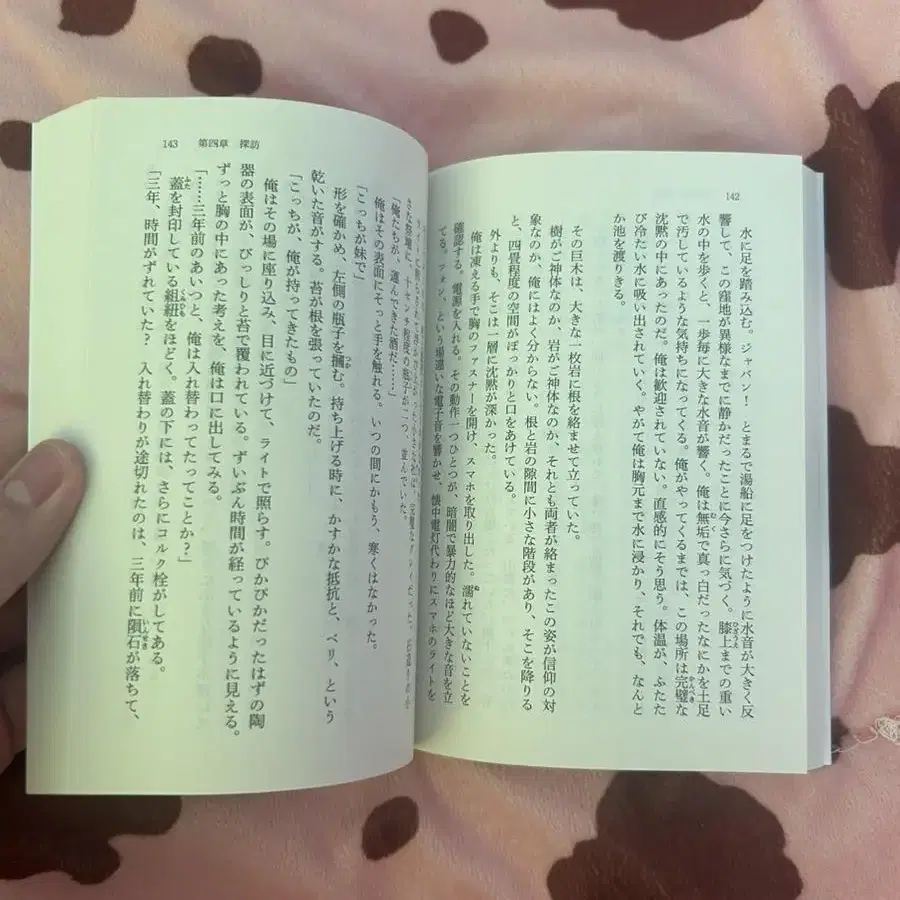 142
水に足を踏み込む。ジャバン！　とまるで湯船に足をつけたように水音が大きく反
響して、この窪地が異様なまでに静かだったことに今さらに気づく。膝上までの重い
水の中を歩くと、一歩毎に大きな水音が響く。俺は無垢で真っ白だったなにかを土足
で汚しているような気持ちになってくる。俺がやってくるまでは、この場所は完璧な
沈黙の中にあったのだ。俺は歓迎されていない。直感的にそう思う。体温が、ふたた
び冷たい水に吸い出されていく。やがて俺は胸元まで水に浸かり、それでも、なんと
か池を渡りきる。
その巨木は、大きな一枚岩に根を絡ませて立っていた。
樹がご神体なのか、岩がご神体なのか、それとも両者が絡まったこの姿が信仰の対
象なのか、俺にはよく分からない。根と岩の隙間に小さな階段があり、そこを降りる
と、四畳程度の空間がぽっかりと口をあけている。
外よりも、そこは一層に沈黙が深かった。
俺は凍える手で胸のファスナーを開け、スマホを取り出した。濡れていないことを
確認する。電源を入れる。その動作一つひとつが、暗闇で暴力的なほど大きな音を立
てる。フォン、という場違いな電子音を響かせ、懐中電灯代わりにスマホのライトを
143　第四章　探訪
さな祭壇に、十センチ程度の瓶子が二つ、並んでいた。
「俺たちが、運んできた酒だ……」
俺はその表面にそっと手を触れる。いつの間にかもう、寒くはなかった。
「こっちが妹で」
形を確かめ、左側の瓶子を掴む。持ち上げる時に、かすかな抵抗と、ベリ、という
乾いた音がする。苔が根を張っていたのだ。
「こっちが、俺が持ってきたもの」
俺はその場に座り込み、目に近づけて、ライトで照らす。ぴかぴかだったはずの陶
器の表面が、びっしりと苔で覆われている。ずいぶん時間が経っているように見える。
ずっと胸の中にあった考えを、俺は口に出してみる。
「……三年前のあいつと、俺は入れ替わってたってことか？」
蓋を封印している組紐をほどく。蓋の下には、さらにコルク栓がしてある。
「三年、時間がずれていた？　入れ替わりが途切れたのは、三年前に隕石が落ちて、